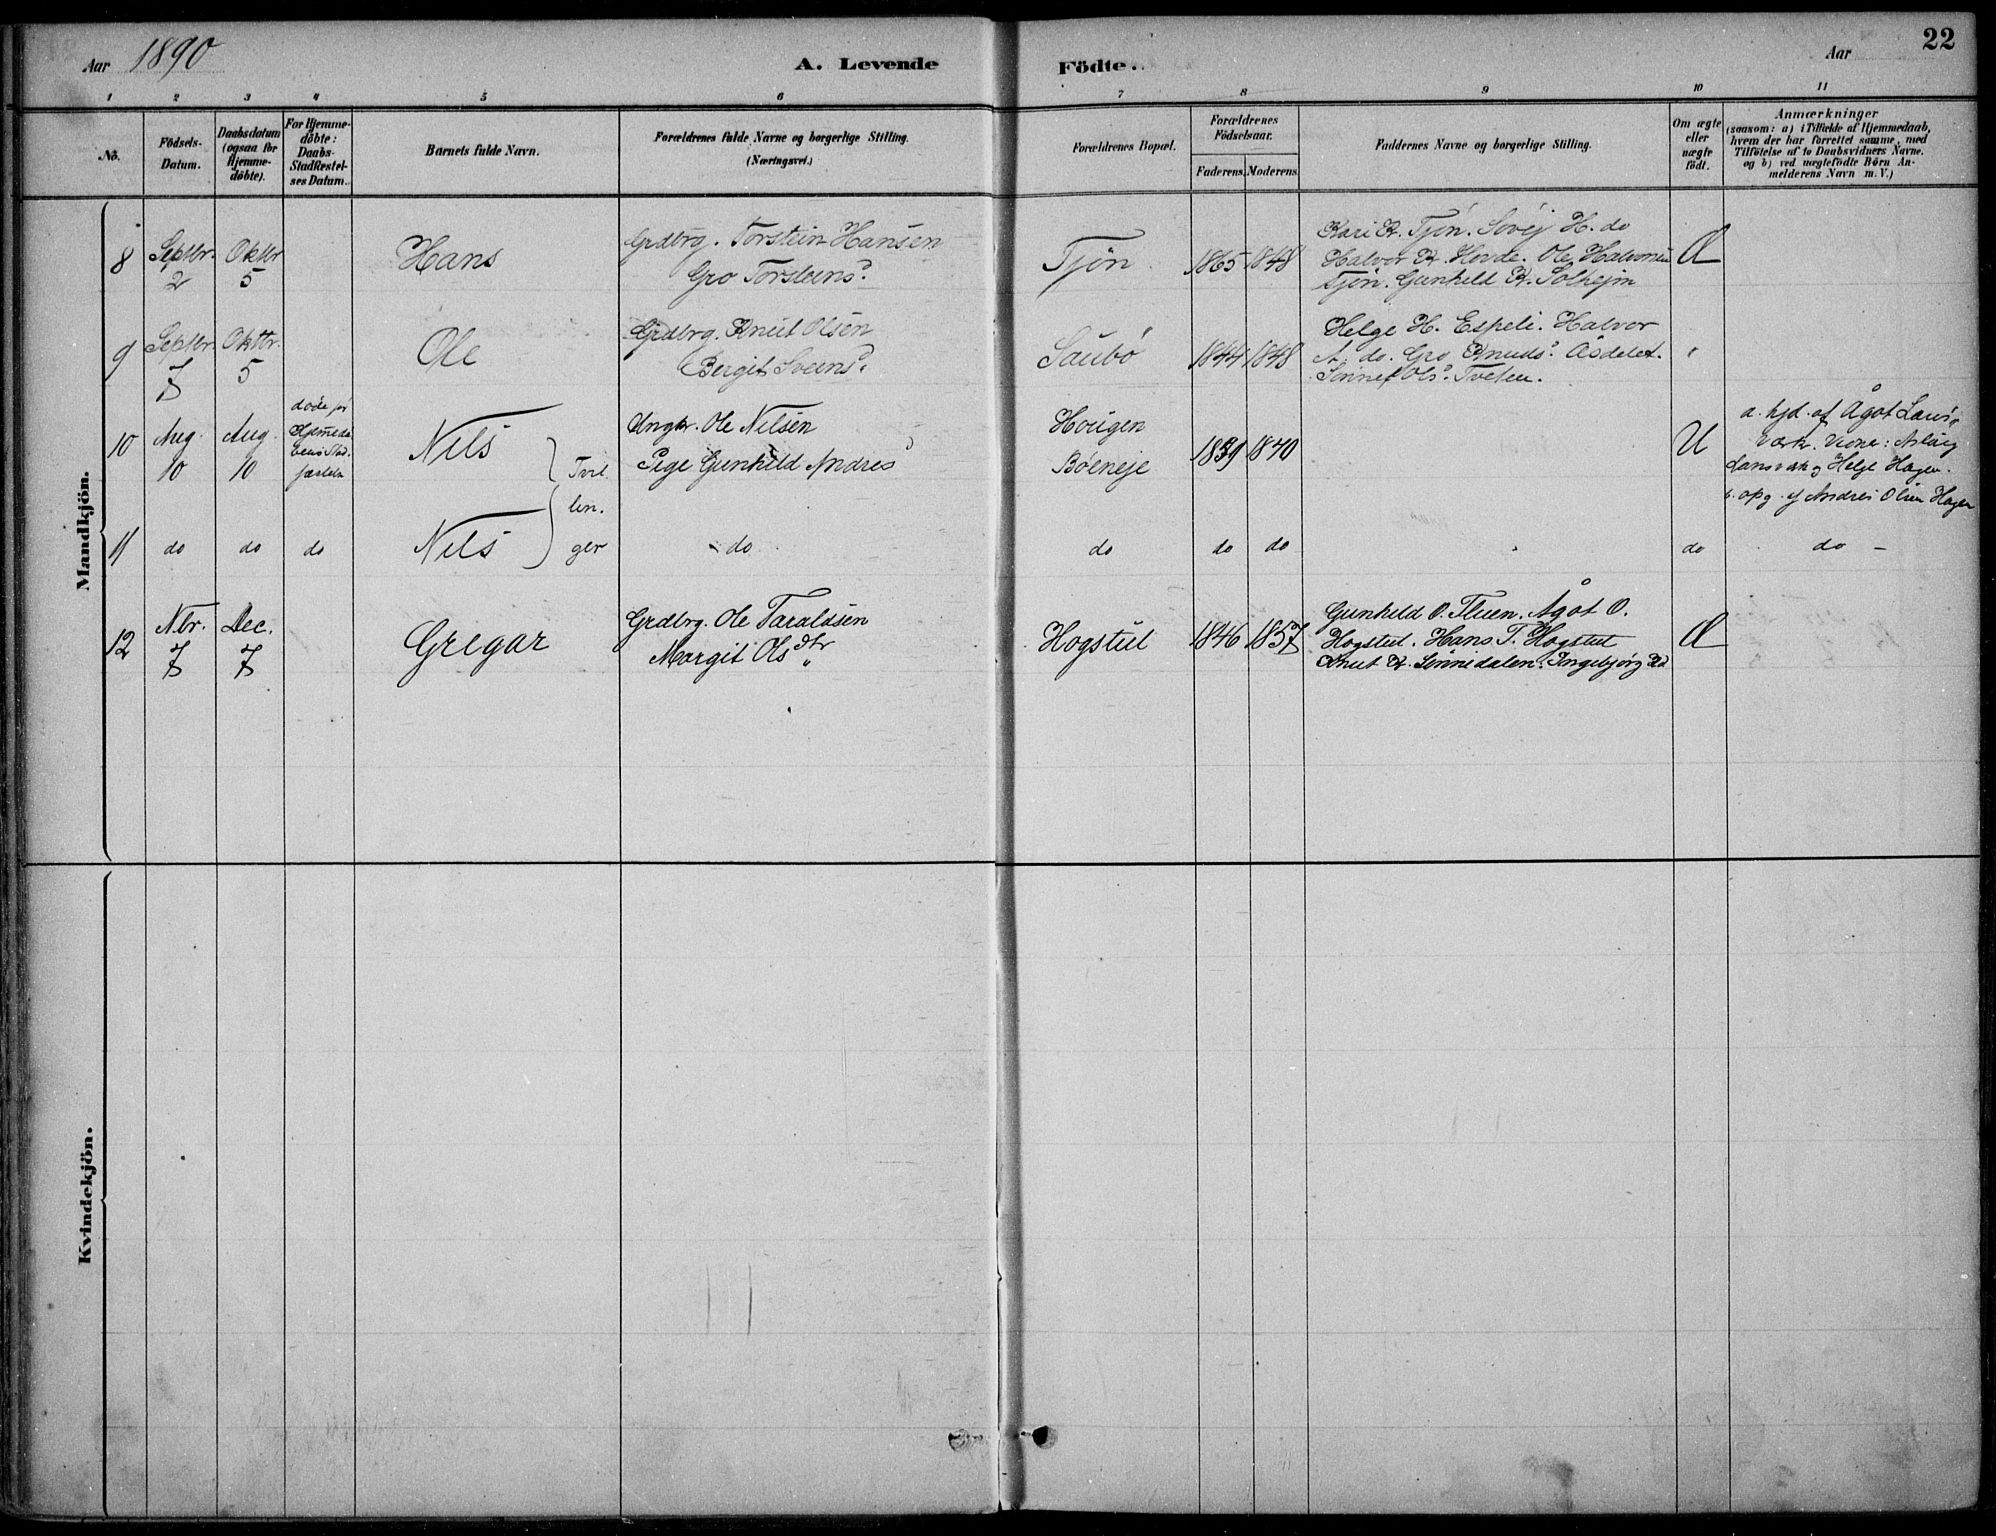 Aar 1890
A. Levende
Födte.
Aar
22
1 2 3 4 5 6 7 8 9 10 11
Nô.
Födsels-
Datum.
Daabsdatum
(ogsaa for
Hjemme-
döbte).
For Hjemme-
döbte:
Daabs-
Stadfæstel-
ses Datum.
Barnets fulde Navn.
Forældrenes fulde Navne og borgerlige Stilling.
(Næringsvei.)
Forældrenes Bopæl.
Forældrenes
Födselsaar.
Faderens. Moderens.
Faddernes Navne og borgerlige Stilling.
Om ægte
eller
uægte
født.
Anmærkninger
(saasom: a) i Tilfælde af Hjemmedaab,
hvem der har forrettet samme, med
Tilföielse af to Daabsvidners Navne.
og b) ved uægtefödte Börn An-
melderens Navn m. V.)
Mandkjön.
8
Septbr.
2
Oktbr
5
Hans
Grdbrg. Torstein Hansen
Gro Torsteensd.
Tjön
1865 1848
Kari K. Tjön. H. do
Halvor K. Hovde. Ole Halvorsen
Tjön. Gunhild K. Solhejm
Æ
9
Septbr.
7
Oktbr.
5
Ole
Grdbrg. Knut Olsen
Bergit Sveinsd.
Saubö
1844 1848
Helge H. Espeli. Halvor
A. do. Gro Knudsd. Åsdelet.
Olsd. Tveten.
"
10
Aug.
10
Aug.
10
döde för
Nils
Tvil
lin.
ger
Ungkr. Ole Nilsen
Pige Gunhild Andresd
Hougen
Böeneje
1839 1840
U
a. hjd. af Ågot
Vidne: Aslaug
og Helge Hagen.
b. opg. af Andres Olsen Hagen
11
do do do
Nils
do
do
do do
do
do –
12
Nbr.
7
Dec.
7
Gregar
Grdbrg. Ole Taraldsen
Margit Olsdtr
Hogstul
1846 1857
Gunhild O. Fluen. Ågot O.
Hogstul. Hans T. Hogstul
Knut K. Sönnedalen. Ingebjörg
Æ
Kvindekjön.